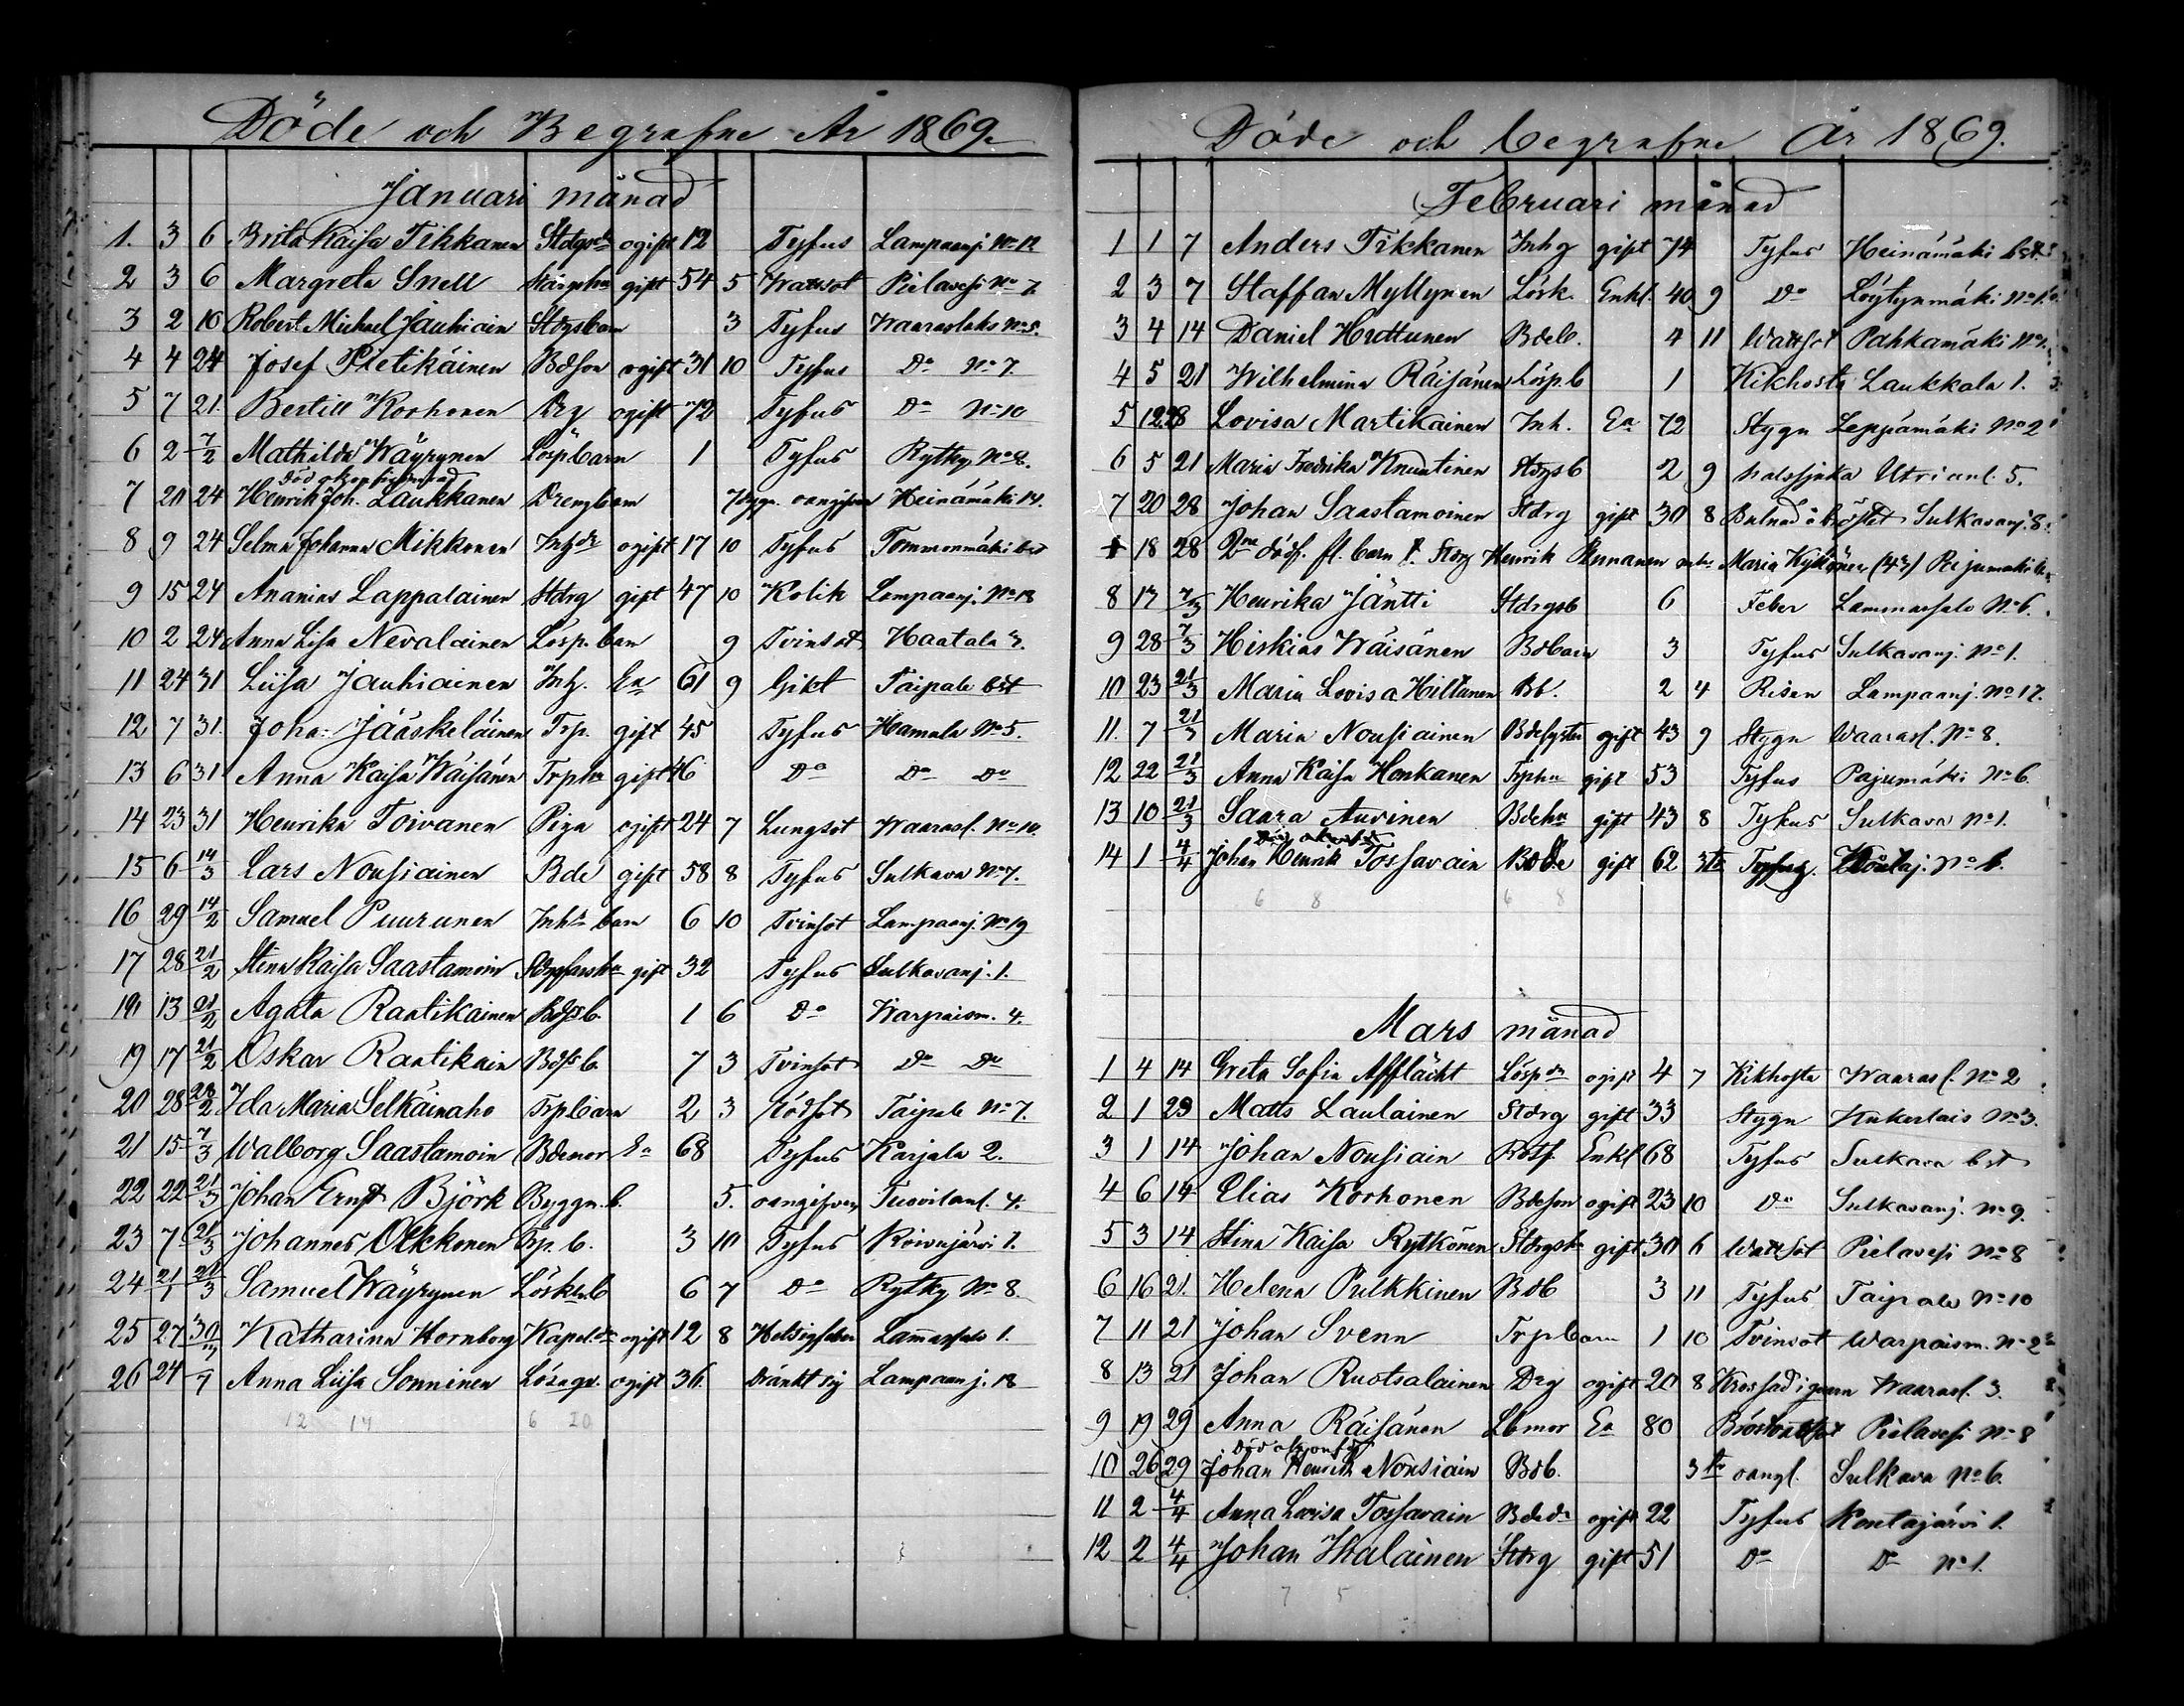 Döde och Begrafne År 1869.
Januari månad
1. 3 6 Brita Kaisa Tikkanen Stdgsdr ogift 12 Tyfus Lampaanj. No 12
2 3 6 Margreta Snell gift 54 5 Wattsot Pielavesi No 7.
3 2 10 Robert Michael Jauhiain Stdgsbarn 3 Tyfus Waaraslaks No 5.
4 4 24 Josef Pietikäinen Bdeson ogift 31 10 Tyfus Do No 7.
5 7 21. Bertill Korhonen Drg ogift 72 Tyfus Do No 10
6 2 7/2 Mathilda Wäyrynen Löspbarn 1 Tyfus Rytky No 8.
7 20 24 Henrik Joh. Laukkanen Drengbarn oangifven Heinämäki 14.
8 9 24 Selma Johanna Mikkonen Inhdr ogift 17 10 Tyfus Tommonmäki bst
9 15 24 Ananias Lappalainen Stdrg gift 47 10 Kolik Lampaanj. No 18
10 2 24 Anna Lisa Nevalainen Lösp. barn 9 Tvinsot Haatala 3.
11 24 31 Liisa Jauhiainen Inh. Ea 61 9 Gikt Taipale bst
12 7 31. Joha: Jääskeläinen Trp. gift 45 Tyfus Hamula No 5.
13 6 31 Anna Kaisa Wäisänen Trphu gift 46 Do Do Do
14 23 31 Henrika Toivanen Piga ogift 24 7 Lungsot Waarasl. No 10.
15 6 14/3 Lars Nousiainen Bde gift 58 8 Tyfus Sulkava No 7.
16 29 14/2 Samuel Puurunen Inhs barn 6 10 Tvinsot Lampaanj. No 19
17 28 21/2 Stina Kaisa Saastamoin gift 32 Tyfus Sulkavanj. 1.
18 13 21/2 Agata Raatikainen Bdsb. 1 6 Do Warpaism. 4.
19 17 21/2 Oskar Raatikain Bdsb. 7 3 Tvinsot Do Do
20 28 28/2 Ida Maria Selkäinaho Trpbarn 2 3 Rödsot Taipale No 7.
21 15 7/3 Walborg Saastamoin Bdemor Ea 68 Tyfus Karjala 2.
22 22 21/3 Johan Ernst Björk Byggn. b. 5. oangifven Tuovilanl. 4.
23 7 21/3 Johannes Okkonen Trp. b. 3 10 Tyfus Koivujärvi 7.
24 21/1 21/3 Samuel Wäyrynen 6 7 Do Rytky No 8.
25 27 Katharina Hornborg Kapel.dr ogift 12 8 Lammassalo 1.
26 24 Anna Liisa Sonninen ogift 36. Dränkt sig Lampaanj. 18
12 14 6 20
Döde och begrafne År 1869.
Februari månad
1 1 7 Anders Tikkanen Inhg gift 74 Tyfus Heinämäki bst.
2 3 7 Staffan Myllynen Lösk. Enkl. 40 9 Do Löytynmäki No 1.
3 4 14 Daniel Huttunen Bdeb. 4 11 Wattsot Pahkamäki No 1.
4 5 21 Wilhelmina Räisänen Lösp.b 1 Kikhosta Laukkala 1.
5 12 28 Lovisa Martikainen Inh. Ea 72 Stygn Leppämäki No 2
6 5 21 Maria Fredrika Knuutinen Stdrgsb 2 9 Halssjuka Utrianl. 5.
7 20 28 Johan Saastamoinen Stdrg gift 30 8 Bulnad i bröstet Sulkavanj. 8.
18 28 2ne dödf. fl. barn f. Stdrg Henrik Pennanen Maria Kykkönen (43)
8 17 7/3 Henrika Jäntti Stdrgsb 6 Feber Lammassalo No 6.
9 28 7/3 Hiskias Wäisänen Bdbarn 3 Tyfus Sulkavanj. No 1.
10 23 21/3 Maria Lovisa Hiltunen Bb. 2 4 Risen Lampaanj. No 17.
11. 7 21/3 Maria Nousiainen Bdesyster ogift 43 9 Stygn Waarasl. No 8.
12 22 21/3 Anna Kaisa Honkanen Trphu gift 53 Tyfus Pajumäki No 6.
13 10 21/3 Saara Auvinen Bdehu gift 43 8 Tyfus Sulkava No 1.
14 1 4/4 Johan Henrik Tossavain Bde gift 62 No 1.
6 8 6 8
Mars månad
1 4 14 Greta Sofia Afflächt Löspdr ogift 4 7 Kikhosta Waarasl. No 2
2 1 29 Matts Laulainen Stdrg gift 33 Stygn No 3.
3 1 14 Johan Nousiain Enkl 68 Tyfus Sulkava bst
4 6 14 Elias Korhonen Bdeson ogift 23 10 Do Sulkavanj. No 9.
5 3 14 Stina Kaisa Rytkönen gift 30 6 Wattsot Pielavesi No 8
6 16 21. Helena Pulkkinen Bdb 3 11 Tyfus Taipale No 10
7 11 21 Johan Svenn Trpbarn 1 10 Tvinsot Warpaism. No 2
8 13 21 Johan Ruotsalainen Drg ogift 20 8 Krossad i qvarn Waarasl. 3.
9 19 29 Anna Räisänen Lbmor Ea 80 Pielavesi No 8
10 26 29 Johan Henrik Nousiain Bdb. oangf. Sulkava No 6.
11 2 4/4 Anna Lovisa Tossavain Bdedr ogift 22 Tyfus Koutajärvi 1.
12 2 4/4 Johan Ihalainen Stdrg gift 51 Do Do No 1.
7 5